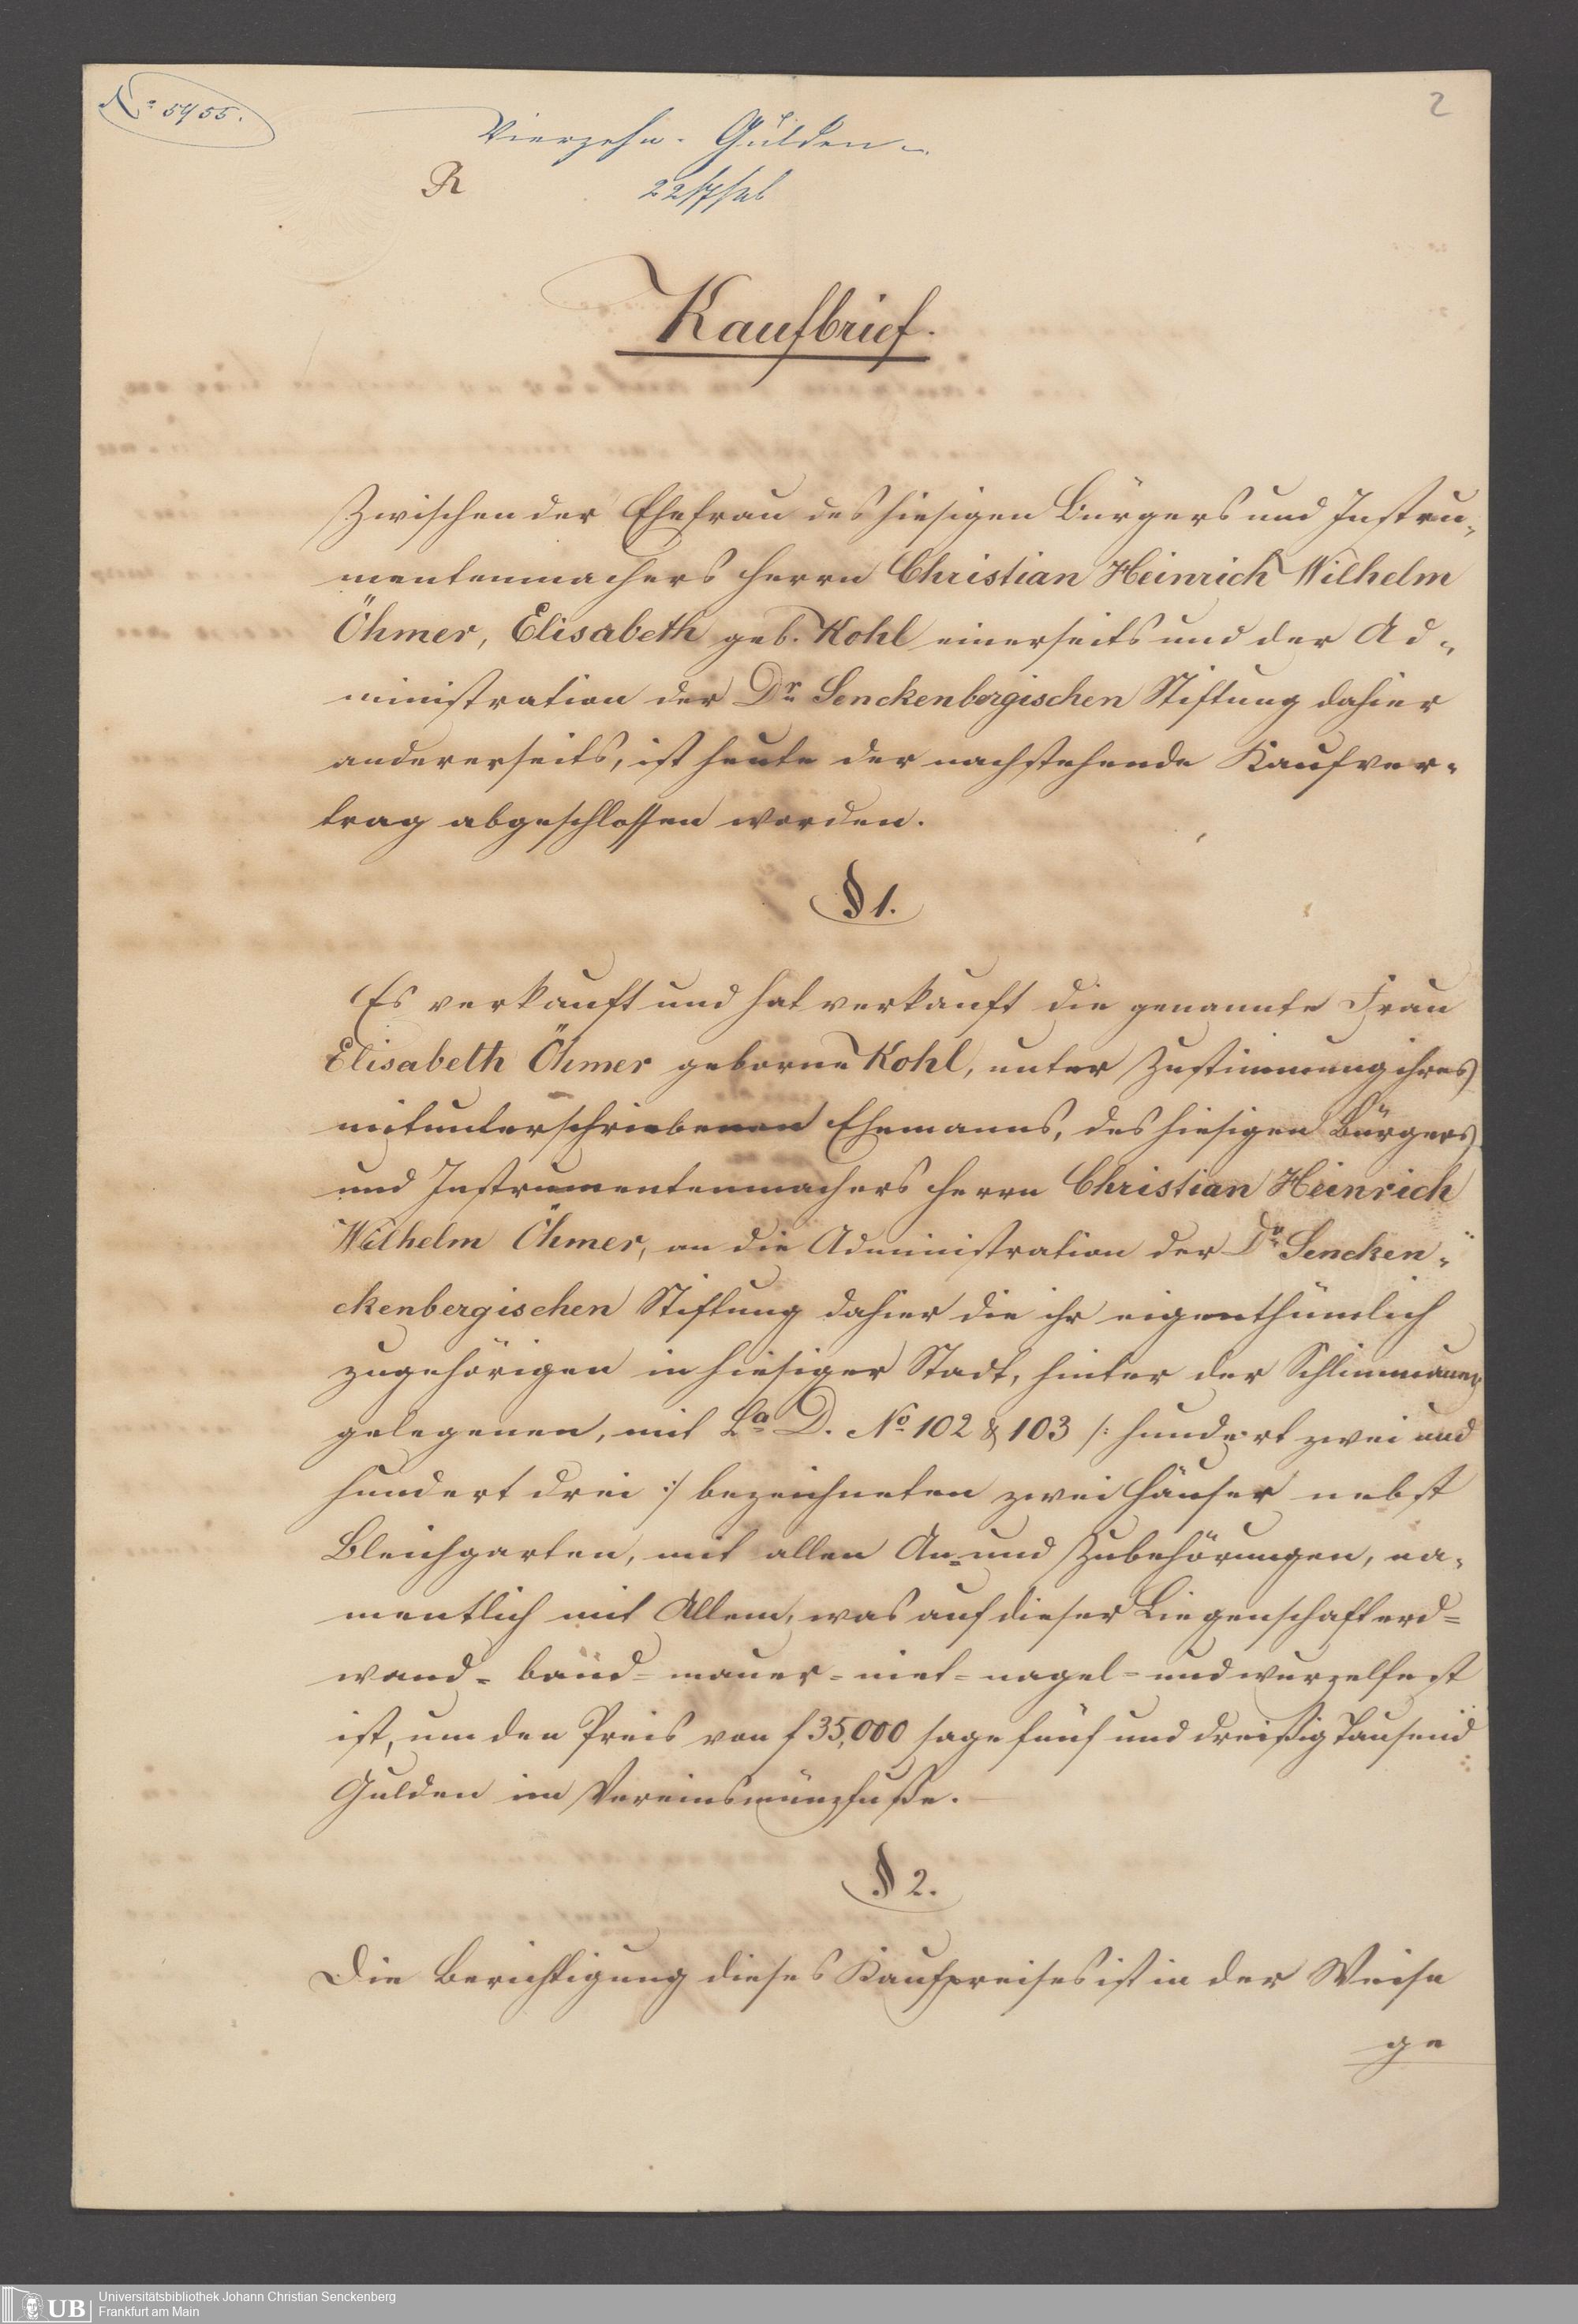 No 5455.
2
Vierzehn Gulden
R
Kaufbrief.
Zwischen der Ehefrau des hiesigen Bürgers und Instru-
mentenmachers Herrn Christian Heinrich Wilhelm
Öhmer, Elisabeth geb. Kohl einerseits und der Ad-
ministration der Dr Senckenbergischen Stiftung dahier
andererseits, ist heute der nachstehende Kaufver-
trag abgeschlossen worden.
§ 1.
Es verkauft und hat verkauft die genannte Frau
Elisabeth Öhmer geborne Kohl, unter Zustimmung ihres
mitunterschriebenen Ehemanns, des hiesigen Bürgers
und Instrumentenmachers Herrn Christian Heinrich
Wilhelm Öhmer, an die Administration der Dr Sencken-
ckenbergischen Stiftung dahier die ihr eigenthümlich
zugehörigen in hiesiger Stadt, hinter der Schlimmauer
gelegenen, mit La D. No 102 & 103 /: hundert zwei und
hundert drei :/ bezeichneten zwei Häuser nebst
Bleichgarten, mit allen An- und Zubehörungen, na-
mentlich mit Allem, was auf dieser Liegenschaft erd-
wand- band- mauer- niet- nagel- und wurzelfest
ist, um den Preis von f 35,000 sage fünf und dreißig Tausend
Gulden im Vereinsmünzfuße.
§ 2.
Die Berichtigung dieses Kaufpreises ist in der Weise
ge
UB
Universitätsbibliothek Johann Christian Senckenberg
Frankfurt am Main